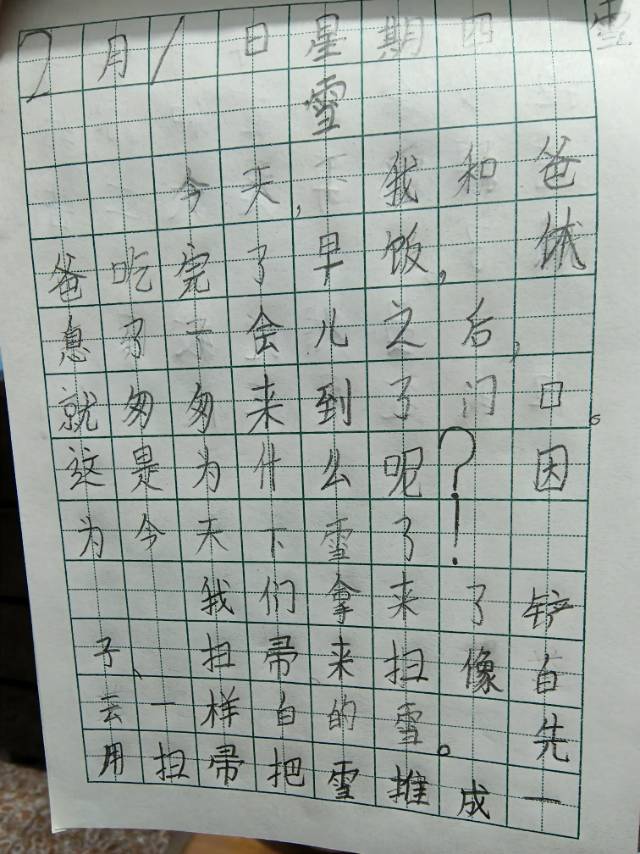 2月1日星期四 雪
雪
今天,我和爸
爸吃完了早饭,休
息了一会儿之后,
就匆匆来到了门口。
这是为什么呢?因
为今天下雪了!
我们拿来了铲
子、扫帚来扫像白
云一样白的雪。先
用扫帚把雪堆成一